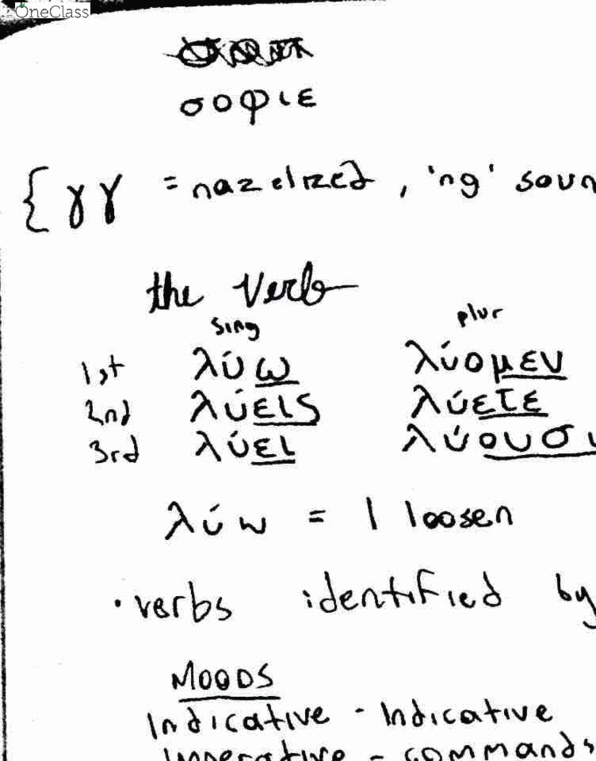 OneClass
σοφιε
{ γγ = nazelized, 'ng' soun
the Verb
sing plur
1st λύω λύομεν
2nd λύεις λύετε
3rd λύει λύουσι
λύω = I loosen
· verbs identified by
MOODS
Indicative - Indicative
Imperative - commands